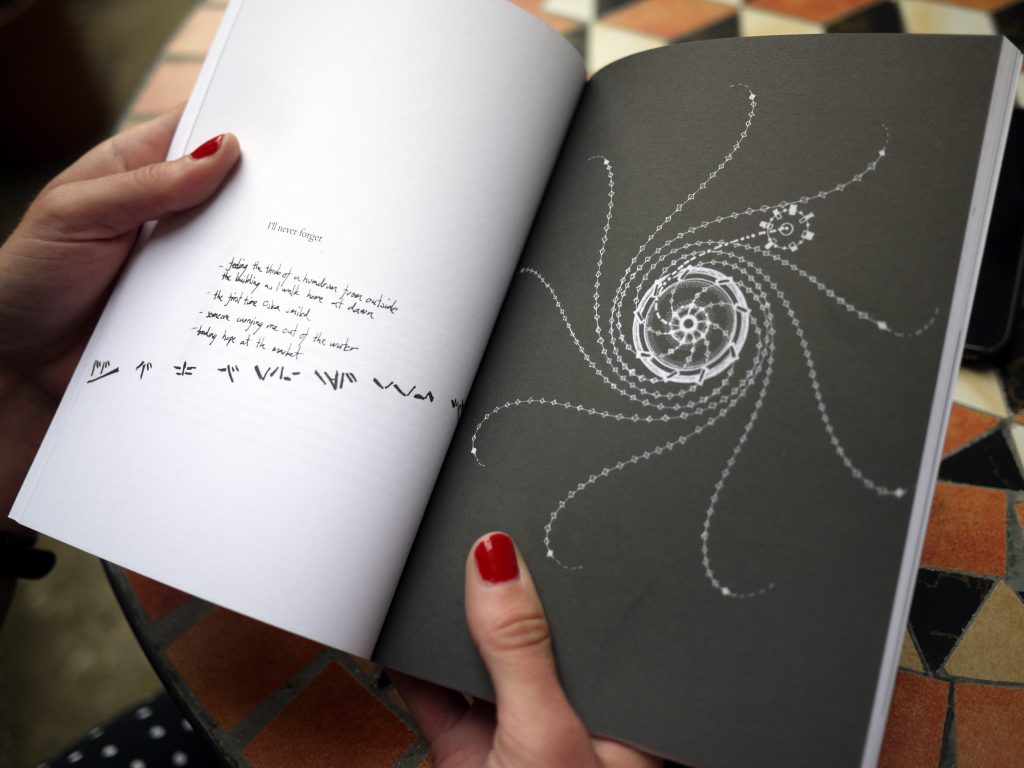 I'll never forget
- feeling the throb of a humdrum from outside
the building as I walk home at dawn
- the first time Osba smiled
- someone carrying me out of the water
- today hope at the market